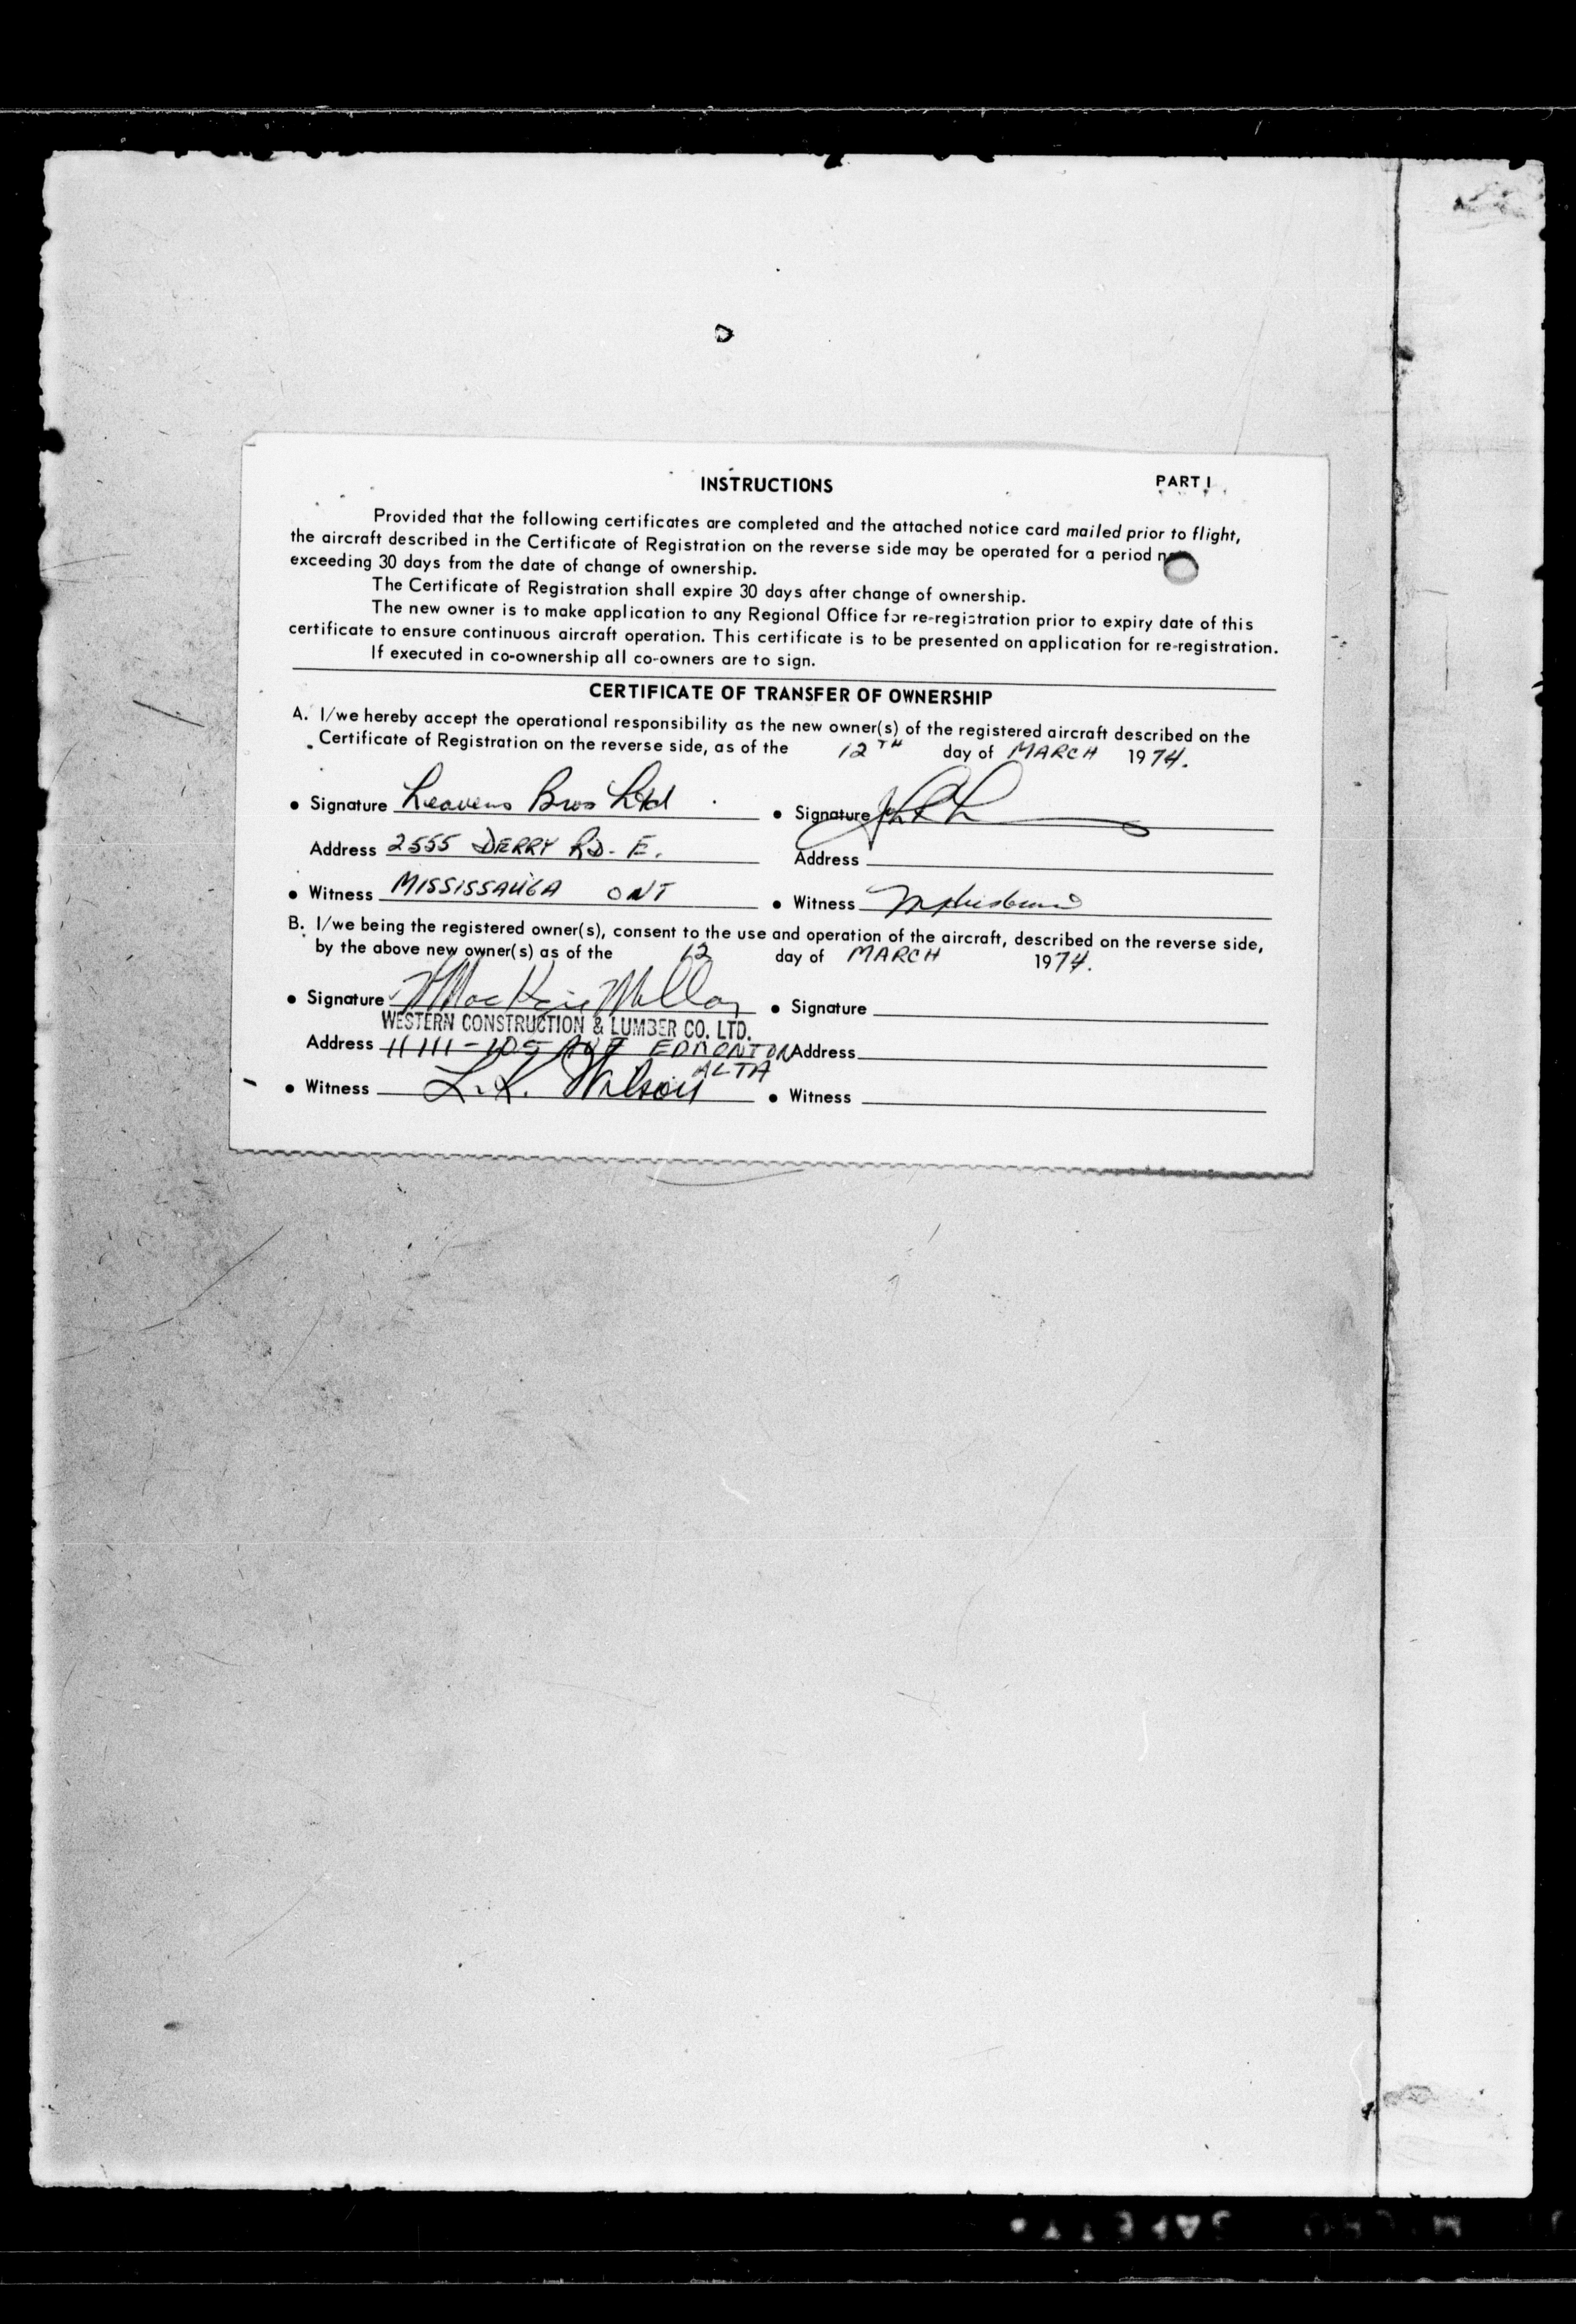 INSTRUCTIONS
PART I
Provided that the following certificates are completed and the attached notice card mailed prior to flight,
the aircraft described in the Certificate of Registration on the reverse side may be operated for a period
exceeding 30 days from the date of change of ownership.
The Certificate of Registration shall expire 30 days after change of ownership.
The new owner is to make application to any Regional Office for re-registration prior to expiry date of this
certificate to ensure continuous aircraft operation. This certificate is to be presented on application for re-registration.
If executed in co-ownership all co-owners are to sign.
CERTIFICATE OF TRANSFER OF OWNERSHIP
A. I/we hereby accept the operational responsibility as the new owner(s) of the registered aircraft described on the
Certificate of Registration on the reverse side, as of the 12TH day of MARCH 1974.
• Signature Leavens Bros Ltd • Signature
Address 2555 DERRY RD. E. Address
• Witness MISSISSAUGA ONT • Witness
B. I/we being the registered owner(s), consent to the use and operation of the aircraft, described on the reverse side,
by the above new owner(s) as of the 12 day of MARCH 1974.
• Signature • Signature
WESTERN CONSTRUCTION & LUMBER CO. LTD.
Address 11111-105 AVE EDMONTON Address
ALTA
• Witness L. K. Wilson • Witness